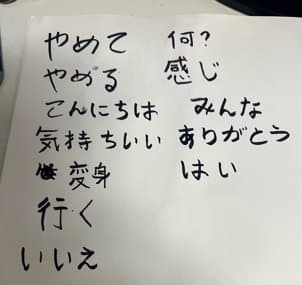 やめて 何?
やめる 感じ
こんにちは みんな
気持ちいい ありがとう
変身 はい
行く
いいえ